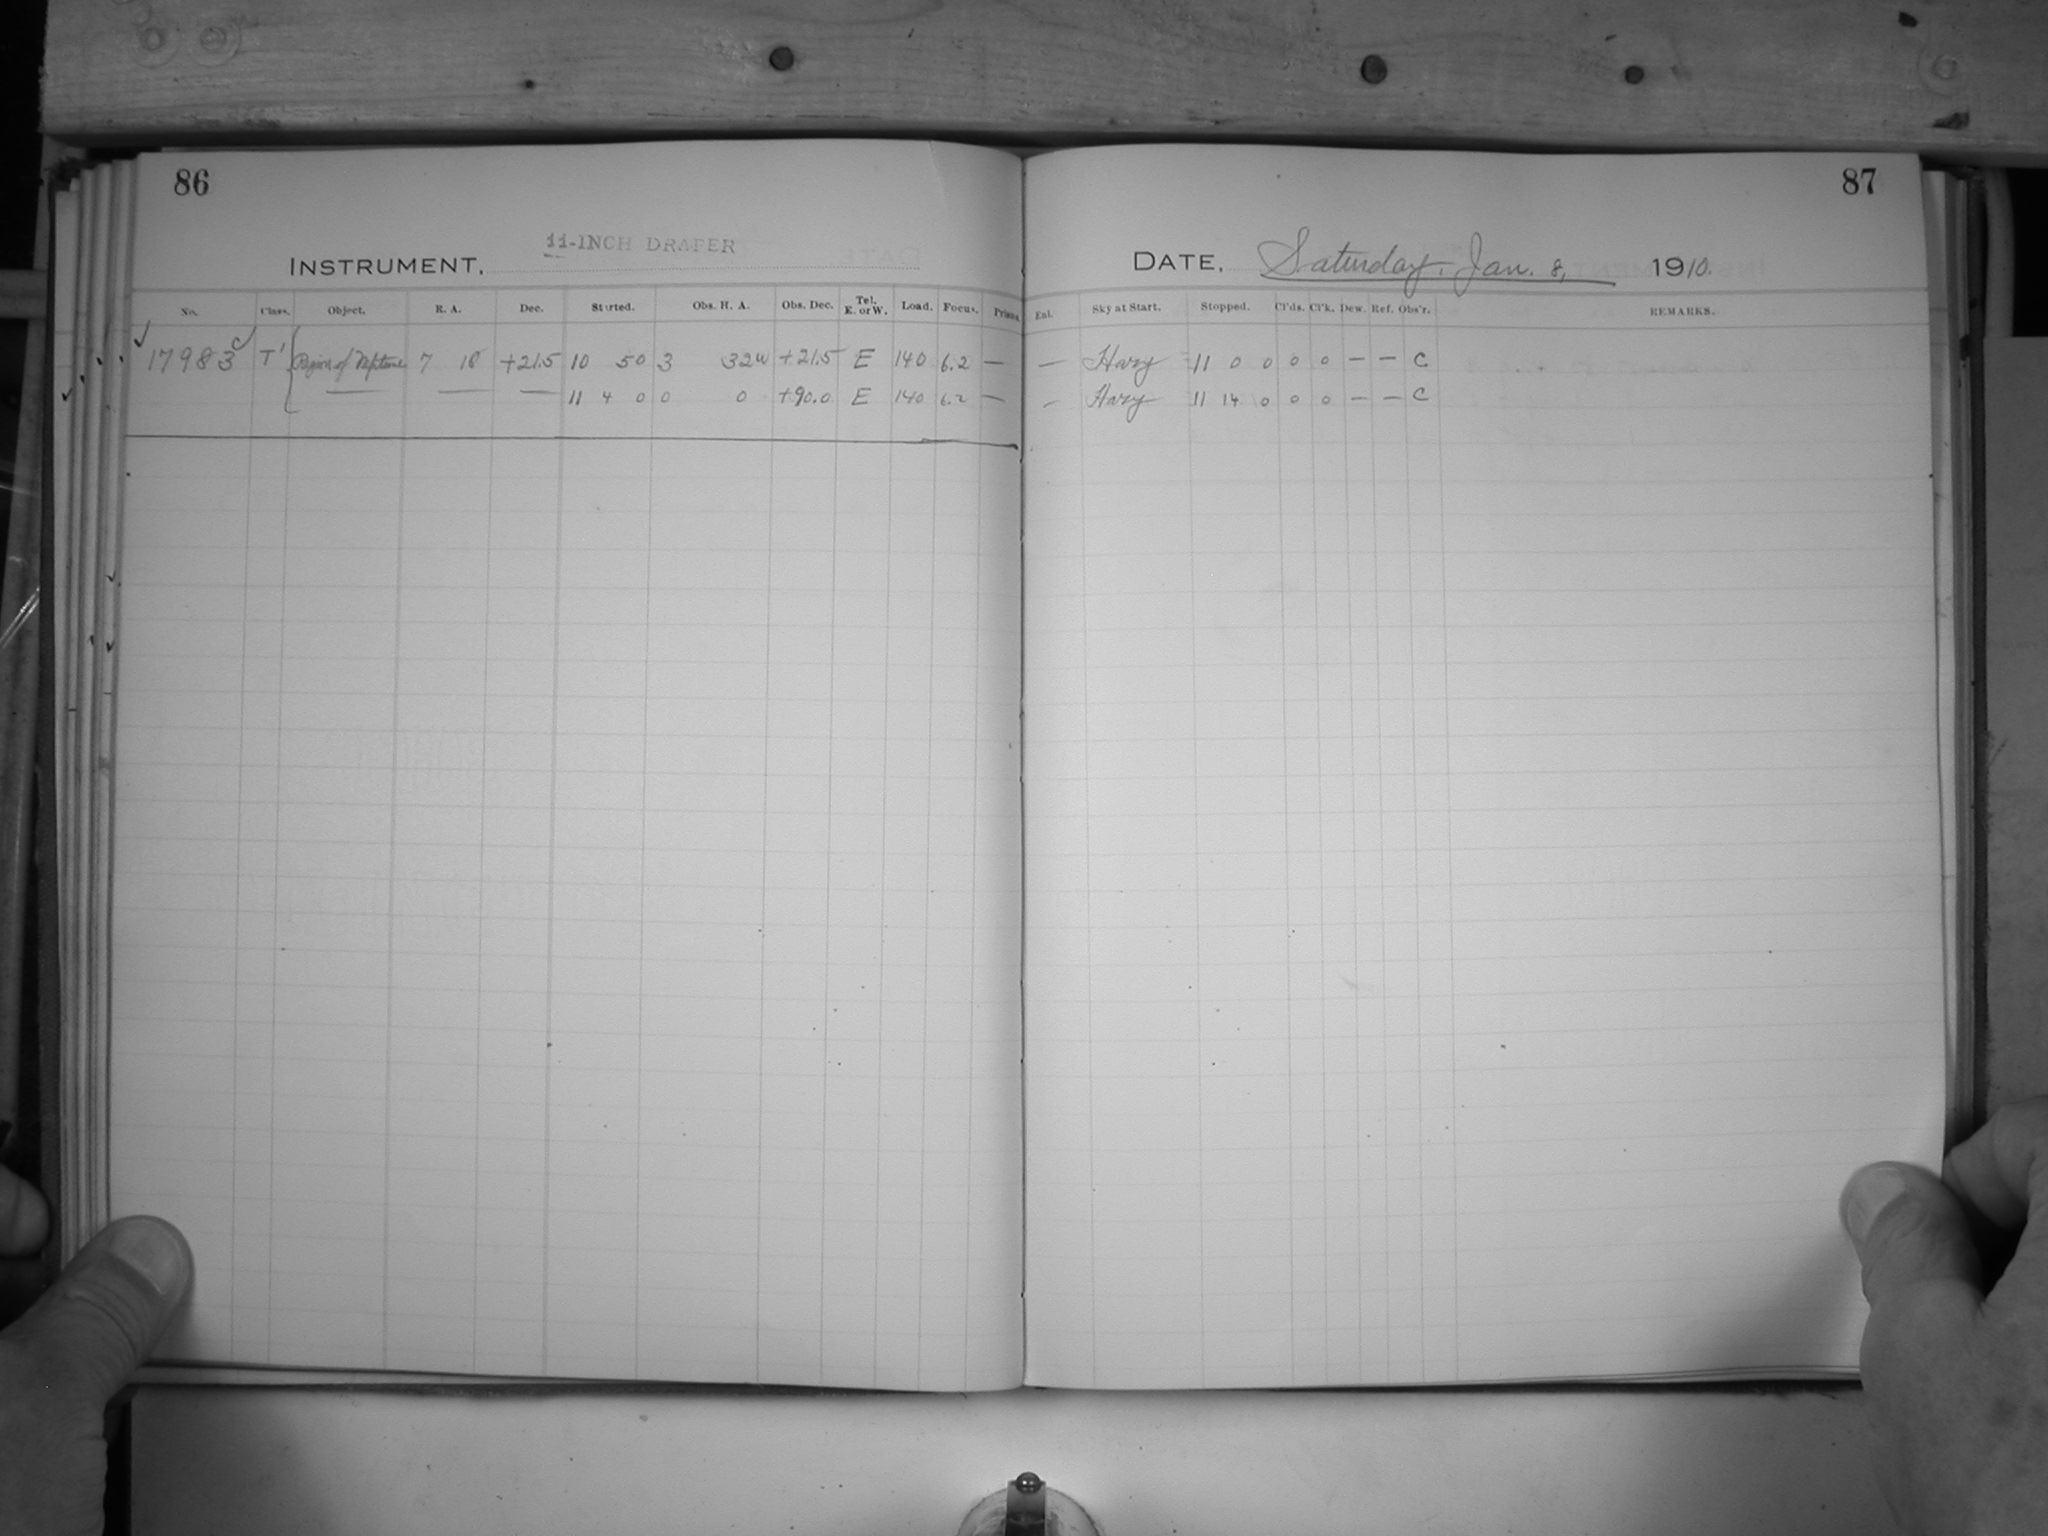 86
INSTRUMENT, 11-INCH DRAPER
No. Class. Object. R. A. Dec. Started. Obs. H. A. Obs. Dec. Tel. E. or W. Load. Focus. Prisms.
17983 C T' Region of Neptune 7 18 +21.5 10 50 3 32w +21.5 E 140 6.2 —
— — — 11 4 0 0 0 +90.0 E 140 6.2 —
87
DATE, Saturday, Jan. 8, 1910.
Enl. Sky at Start. Stopped. Cl'ds. Cl'k. Dew. Ref. Obs'r. REMARKS.
— Hazy 11 0 0 0 0 — — C
— Hazy 11 14 0 0 0 — — C